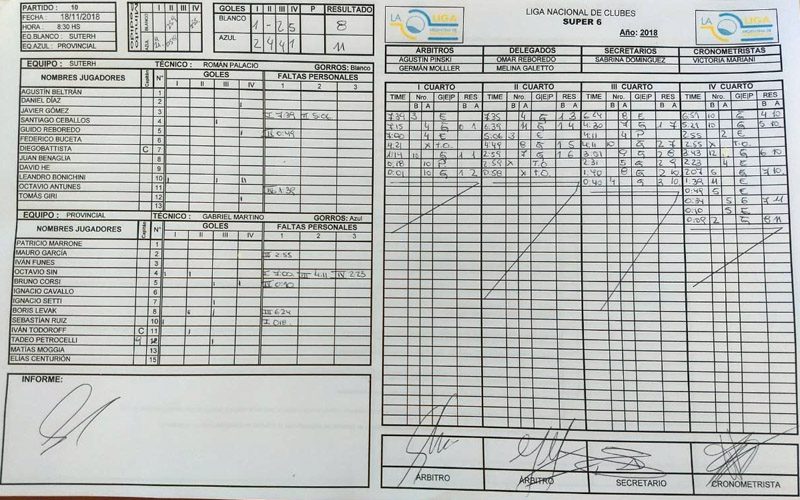 PARTIDO : 10
FECHA : 18/11/2018
HORA : 8:30 HS
EQ.BLANCO : SUTERH
EQ.AZUL : PROVINCIAL
I II III IV
BLANCO
AZUL
GOLES I II III IV P RESULTADO
BLANCO 1 - 2 5 8
AZUL 2 4 4 1 11
EQUIPO : SUTERH TÉCNICO : ROMÁN PALACIO GORROS: Blanco
NOMBRES JUGADORES N° GOLES FALTAS PERSONALES
I II III IV 1 2 3
AGUSTÍN BELTRÁN 1
DANIEL DÍAZ 2
JAVIER GÓMEZ 3 I 7.39 II 5.06
SANTIAGO CEBALLOS 4
GUIDO REBOREDO 5 II 0:49
FEDERICO BUCETA 6
DIEGOBATTISTA C 7
JUAN BENAGLIA 8
DAVID HE 9
LEANDRO BONICHINI 10
OCTAVIO ANTUNES 11 IV 1.39
TOMÁS GIRI 12
13
EQUIPO : PROVINCIAL TÉCNICO : GABRIEL MARTINO GORROS: Azul
NOMBRES JUGADORES N° GOLES FALTAS PERSONALES
I II III IV 1 2 3
PATRICIO MARRONE 1
MAURO GARCÍA 2 III 2.55
IVÁN FUNES 3
OCTAVIO SIN 4 I 7.00 III 4.11 IV 2.23
BRUNO CORSI 5 II 0:10
IGNACIO CAVALLO 6
IGNACIO SETTI 7
BORIS LEVAK 8 III 6.24
SEBASTIÁN RUIZ 10 I 0.18
IVÁN TODOROFF C 11
TADEO PETROCELLI 9
MATÍAS MOGGIA 13
ELÍAS CENTURIÓN 15
INFORME:
LA LIGA
LIGA NACIONAL DE CLUBES
SUPER 6
Año: 2018
LA LIGA
ÁRBITROS DELEGADOS SECRETARIOS CRONOMETRISTAS
AGUSTIN PINSKI OMAR REBOREDO SABRINA DOMÍNGUEZ VICTORIA MARIANI
GERMÁN MOLLLER MELINA GALETTO
I CUARTO II CUARTO III CUARTO IV CUARTO
TIME Nro. G|E|P RES TIME Nro. G|E|P RES TIME Nro. G|E|P RES TIME Nro. G|E|P RES
B A B A B A B A B A B A B A B A
7.39 3 E 7.35 4 G 1 3 6.24 8 E 6:59 10 G 4 10
7.15 4 G 0 1 6.39 11 G 1 4 4:30 7 G 1 7 5:21 10 G 5 10
7.00 4 E 5:06 3 E 4:11 4 P 2.55 2 E
4.21 x T.O. 4.49 8 G 1 5 4:11 10 G 2 7 2.55 x T.O.
1:14 10 G 1 1 2:59 7 G 1 6 3:51 8 G 2 8 3.43 12 G 6 10
0:18 10 P 2.59 x T.O 2:31 5 G 2 9 2.23 4 E
0:01 10 G 1 2 0.58 x T.O. 1.40 8 G 2 10 2:07 5 G 7 10
0:40 4 G 3 10 1.39 11 E
0:49 5 E
0:34 5 G 7 11
0:10 5 E
0:09 2 G 8 11
ÁRBITRO ÁRBITRO SECRETARIO CRONOMETRISTA